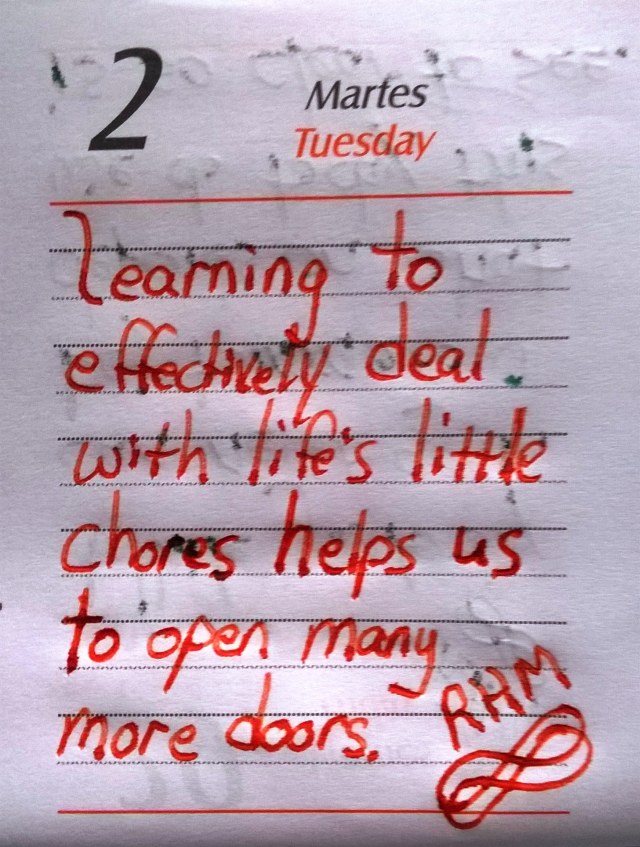 2
Martes
Tuesday
learning to
effectively deal
with life's little
chores helps us
to open many
more doors.
RHM